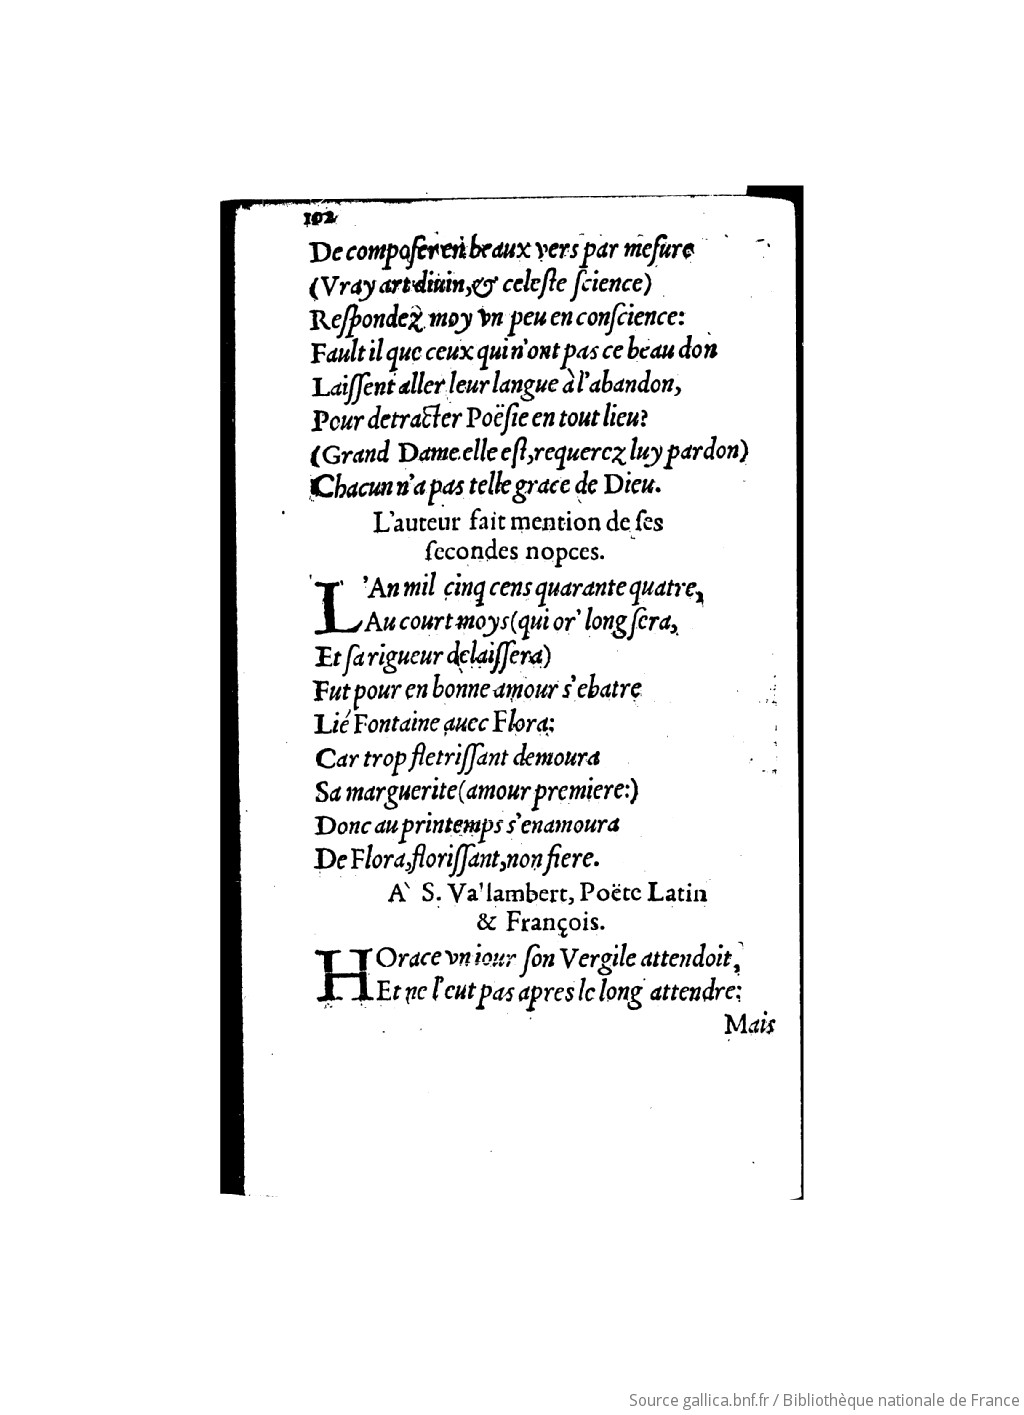 102
De compoſer en beaux vers par meſure
(Vray art diuin, & celeſte ſcience)
Reſpondez moy vn peu en conſcience:
Fault il que ceux qui n'ont pas ce beau don
Laiſſent aller leur langue à l'abandon,
Pour detracter Poëſie en tout lieu?
(Grand Dame elle eſt, requerez luy pardon)
Chacun n'a pas telle grace de Dieu.
L'auteur fait mention de ſes
ſecondes nopces.
L'An mil cinq cens quarante quatre,
Au court moys (qui or' long ſera,
Et ſa rigueur delaiſſera)
Fut pour en bonne amour s'ebatre
Lié Fontaine auec Flora:
Car trop fletriſſant demoura
Sa marguerite (amour premiere:)
Donc au printemps s'enamoura
De Flora, floriſſant, non fiere.
A` S. Va'lambert, Poëte Latin
& François.
HOrace vn iour ſon Vergile attendoit,
Et ne l'eut pas apres le long attendre:
Mais
Source gallica.bnf.fr / Bibliothèque nationale de France